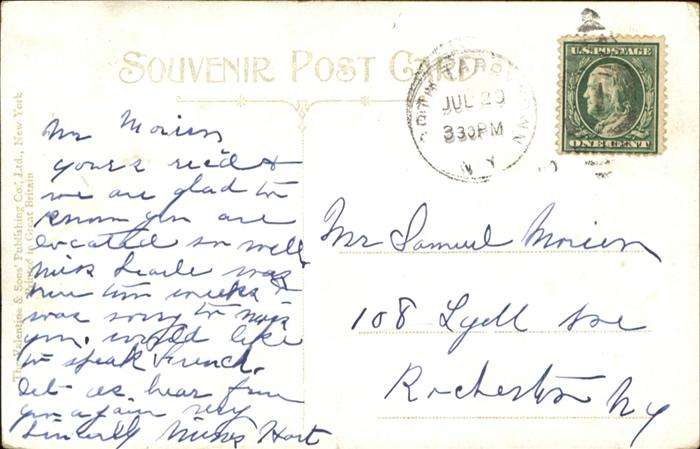 SOUVENIR POST CARD
JUL 29
330PM
N Y
U.S. POSTAGE
ONE CENT
The Valentine & Sons' Publishing Co., Ltd., New York
Printed in Great Britain
Mr Morien
yours rec'd &
we are glad to
know you are
located so well
Miss Searle was
here two weeks &
was sorry to miss
you. would like
to speak French.
let us hear from
you again very
sincerely Hart
Mr Samuel Morien
108 Lyell Ave
Rochester NY